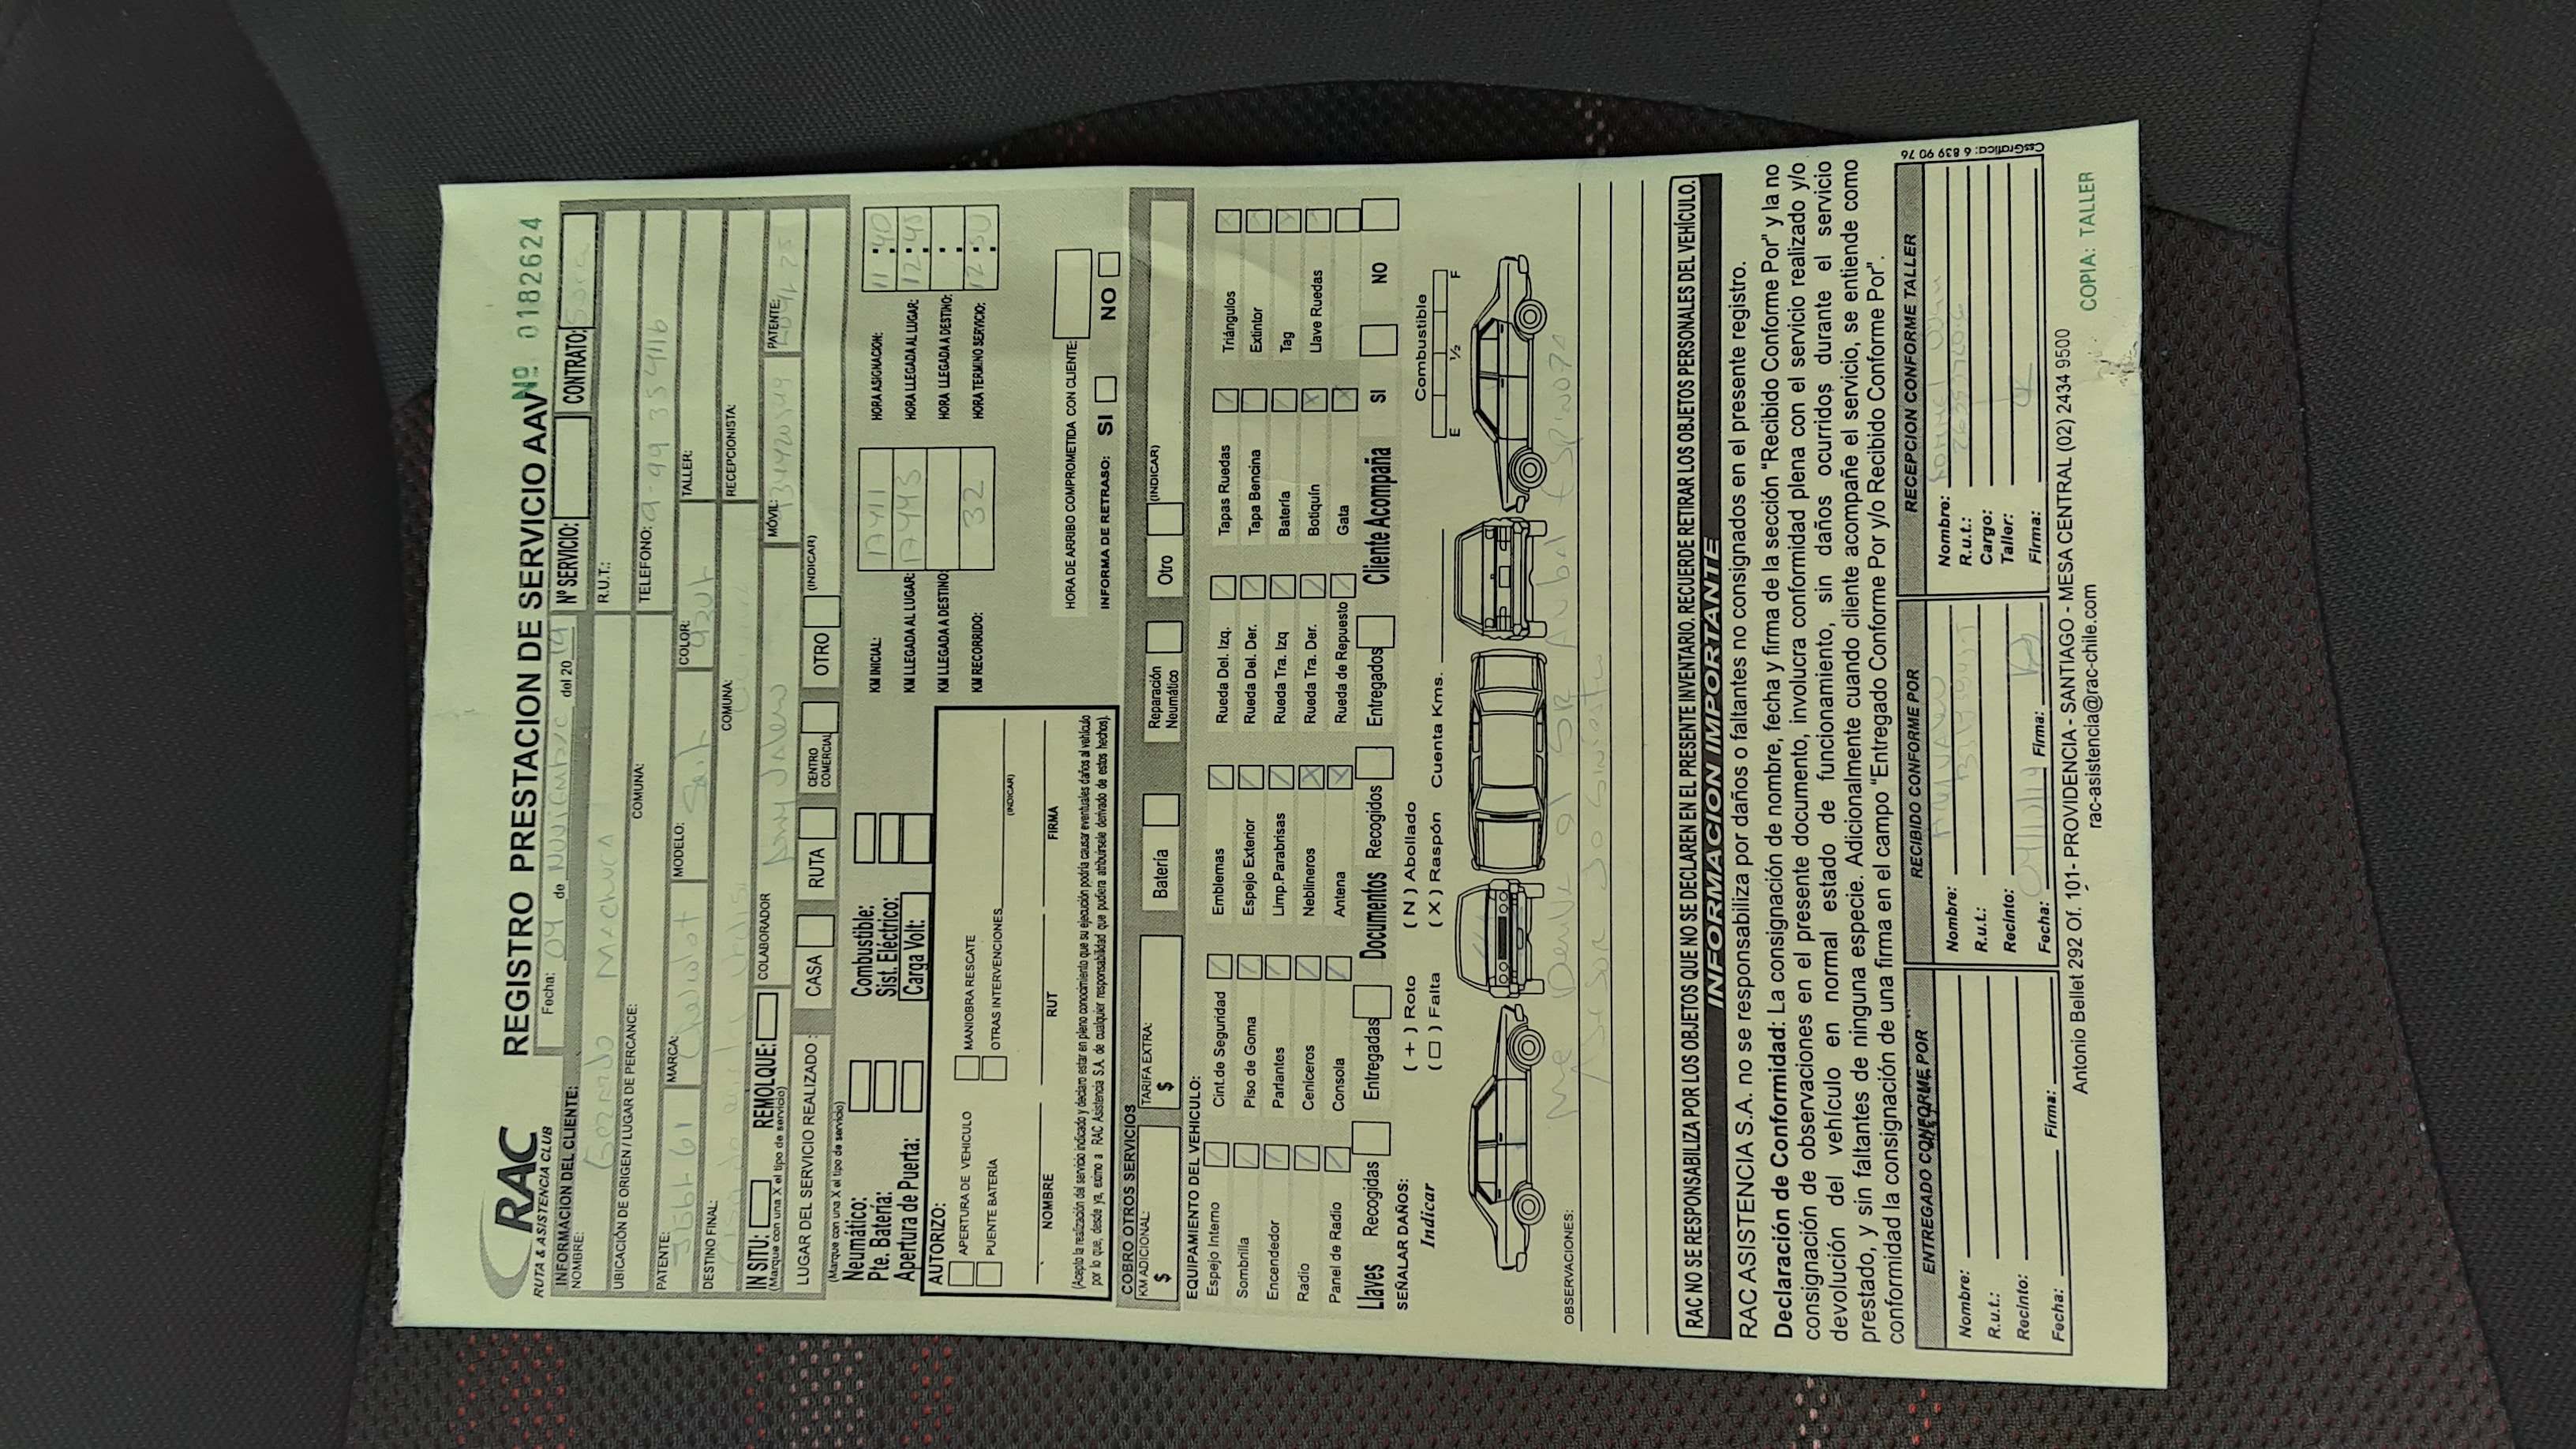 RAC
RUTA & ASISTENCIA CLUB
REGISTRO PRESTACION DE SERVICIO AAV
Nº 0182624
INFORMACION DEL CLIENTE:
Fecha: 04 de Noviembre del 20 19
Nº SERVICIO:
CONTRATO:
NOMBRE: Gerardo Machuca
R.U.T.:
UBICACIÓN DE ORIGEN / LUGAR DE PERCANCE:
COMUNA:
TELEFONO: 9-99354116
PATENTE:
MARCA: Chevrolet
MODELO: Sail
COLOR: azul
TALLER:
DESTINO FINAL:
COMUNA:
RECEPCIONISTA:
IN SITU:
REMOLQUE:
(Marque con una X el tipo de servicio)
COLABORADOR
MÓVIL:
PATENTE:
LUGAR DEL SERVICIO REALIZADO :
(Marque con una X el tipo de servicio)
CASA
RUTA
CENTRO COMERCIAL
OTRO
(INDICAR)
Neumático:
Combustible:
Pte. Batería:
Sist. Eléctrico:
Apertura de Puerta:
Carga Volt:
KM INICIAL: 17411
HORA ASIGNACION: 11:40
KM LLEGADA AL LUGAR: 17443
HORA LLEGADA AL LUGAR: 12:45
KM LLEGADA A DESTINO:
HORA LLEGADA A DESTINO:
KM RECORRIDO: 32
HORA TERMINO SERVICIO: 12:50
AUTORIZO:
APERTURA DE VEHICULO
MANIOBRA RESCATE
PUENTE BATERÍA
OTRAS INTERVENCIONES
(INDICAR)
NOMBRE
RUT
FIRMA
(Acepto la realización del servicio indicado y declaro estar en pleno conocimiento que su ejecución podría causar eventuales daños al vehículo
por lo que, desde ya, eximo a RAC Asistencia S.A. de cualquier responsabilidad que pudiera atribuírsele derivado de estos hechos).
HORA DE ARRIBO COMPROMETIDA CON CLIENTE:
INFORMA DE RETRASO: SI NO
COBRO OTROS SERVICIOS
KM ADICIONAL:
$
TARIFA EXTRA:
$
Batería
Reparación Neumático
Otro
(INDICAR)
EQUIPAMIENTO DEL VEHICULO:
Espejo Interno
Cint.de Seguridad
Emblemas
Rueda Del. Izq.
Tapas Ruedas
Triángulos
Sombrilla
Piso de Goma
Espejo Exterior
Rueda Del. Der.
Tapa Bencina
Extintor
Encendedor
Parlantes
Limp.Parabrisas
Rueda Tra. Izq
Batería
Tag
Radio
Ceniceros
Neblineros
Rueda Tra. Der.
Botiquín
Llave Ruedas
Panel de Radio
Consola
Antena
Rueda de Repuesto
Gata
Llaves Recogidas Entregadas Documentos Recogidos Entregados Cliente Acompaña SI NO
SEÑALAR DAÑOS:
Indicar
( + ) Roto
( N ) Abollado
( □ ) Falta
( X ) Raspón
Cuenta Kms.
Combustible
E ½ F
OBSERVACIONES:
RAC NO SE RESPONSABILIZA POR LOS OBJETOS QUE NO SE DECLAREN EN EL PRESENTE INVENTARIO. RECUERDE RETIRAR LOS OBJETOS PERSONALES DEL VEHÍCULO.
INFORMACION IMPORTANTE
RAC ASISTENCIA S.A. no se responsabiliza por daños o faltantes no consignados en el presente registro.
Declaración de Conformidad: La consignación de nombre, fecha y firma de la sección "Recibido Conforme Por" y la no
consignación de observaciones en el presente documento, involucra conformidad plena con el servicio realizado y/o
devolución del vehículo en normal estado de funcionamiento, sin daños ocurridos durante el servicio
prestado, y sin faltantes de ninguna especie. Adicionalmente cuando cliente acompañe el servicio, se entiende como
conformidad la consignación de una firma en el campo "Entregado Conforme Por y/o Recibido Conforme Por".
ENTREGADO CONFORME POR
RECIBIDO CONFORME POR
RECEPCION CONFORME TALLER
Nombre:
R.u.t.:
Recinto:
Fecha:
Firma:
Nombre:
R.u.t.:
Recinto:
Fecha: 04/11/19
Firma:
Nombre:
R.u.t.:
Cargo:
Taller:
Firma:
CssGrafica: 6 839 90 76
Antonio Bellet 292 Of. 101 - PROVIDENCIA - SANTIAGO - MESA CENTRAL (02) 2434 9500
rac-asistencia@rac-chile.com
COPIA: TALLER